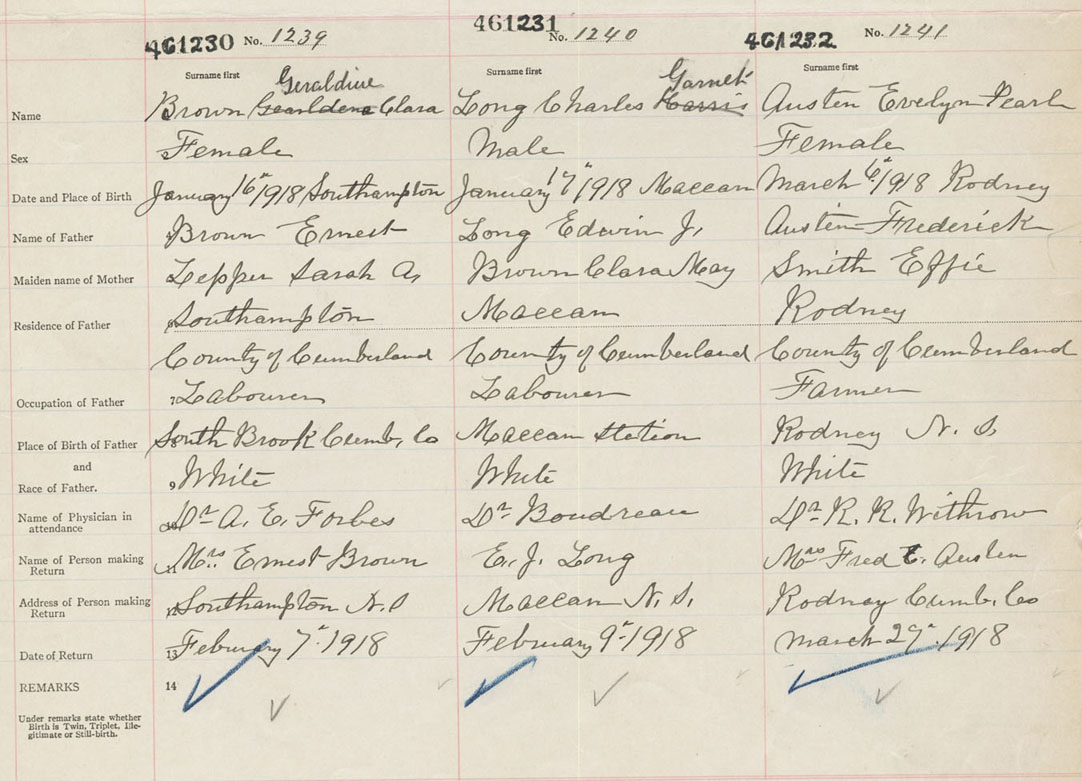 461230 No. 1239
461231 No. 1240
461232 No. 1241
Surname first Surname first Surname first
Geraldine Garnet
Name Brown Gearldene Clara Long Charles Harris Austen Evelyn Pearl
Sex Female Male Female
Date and Place of Birth January 16" 1918 Southampton January 17" 1918 Maccan March 6" 1918 Rodney
Name of Father Brown Ernest Long Edwin J. Austen Frederick
Maiden name of Mother Lepper Sarah A. Brown Clara May Smith Effie
Residence of Father 6 Southampton Maccan Rodney
County of Cumberland County of Cumberland County of Cumberland
Occupation of Father 7 Labourer Labourer Farmer
Place of Birth of Father 8 South Brook Cumb. Co Maccan Station Rodney N. S.
and
Race of Father. 9 White White White
Name of Physician in
attendance 10 Dr A. E. Forbes Dr Boudreau Dr R. R. Withrow
Name of Person making
Return 11 Mrs. Ernest Brown E. J. Long Mrs Fred E. Austen
Address of Person making
Return 12 Southampton N. S Maccan N. S. Rodney Cumb. Co
Date of Return 13 February 7" 1918 February 9" 1918 March 27" 1918
REMARKS 14
Under remarks state whether
Birth is Twin, Triplet, Ille-
gitimate or Still-birth.